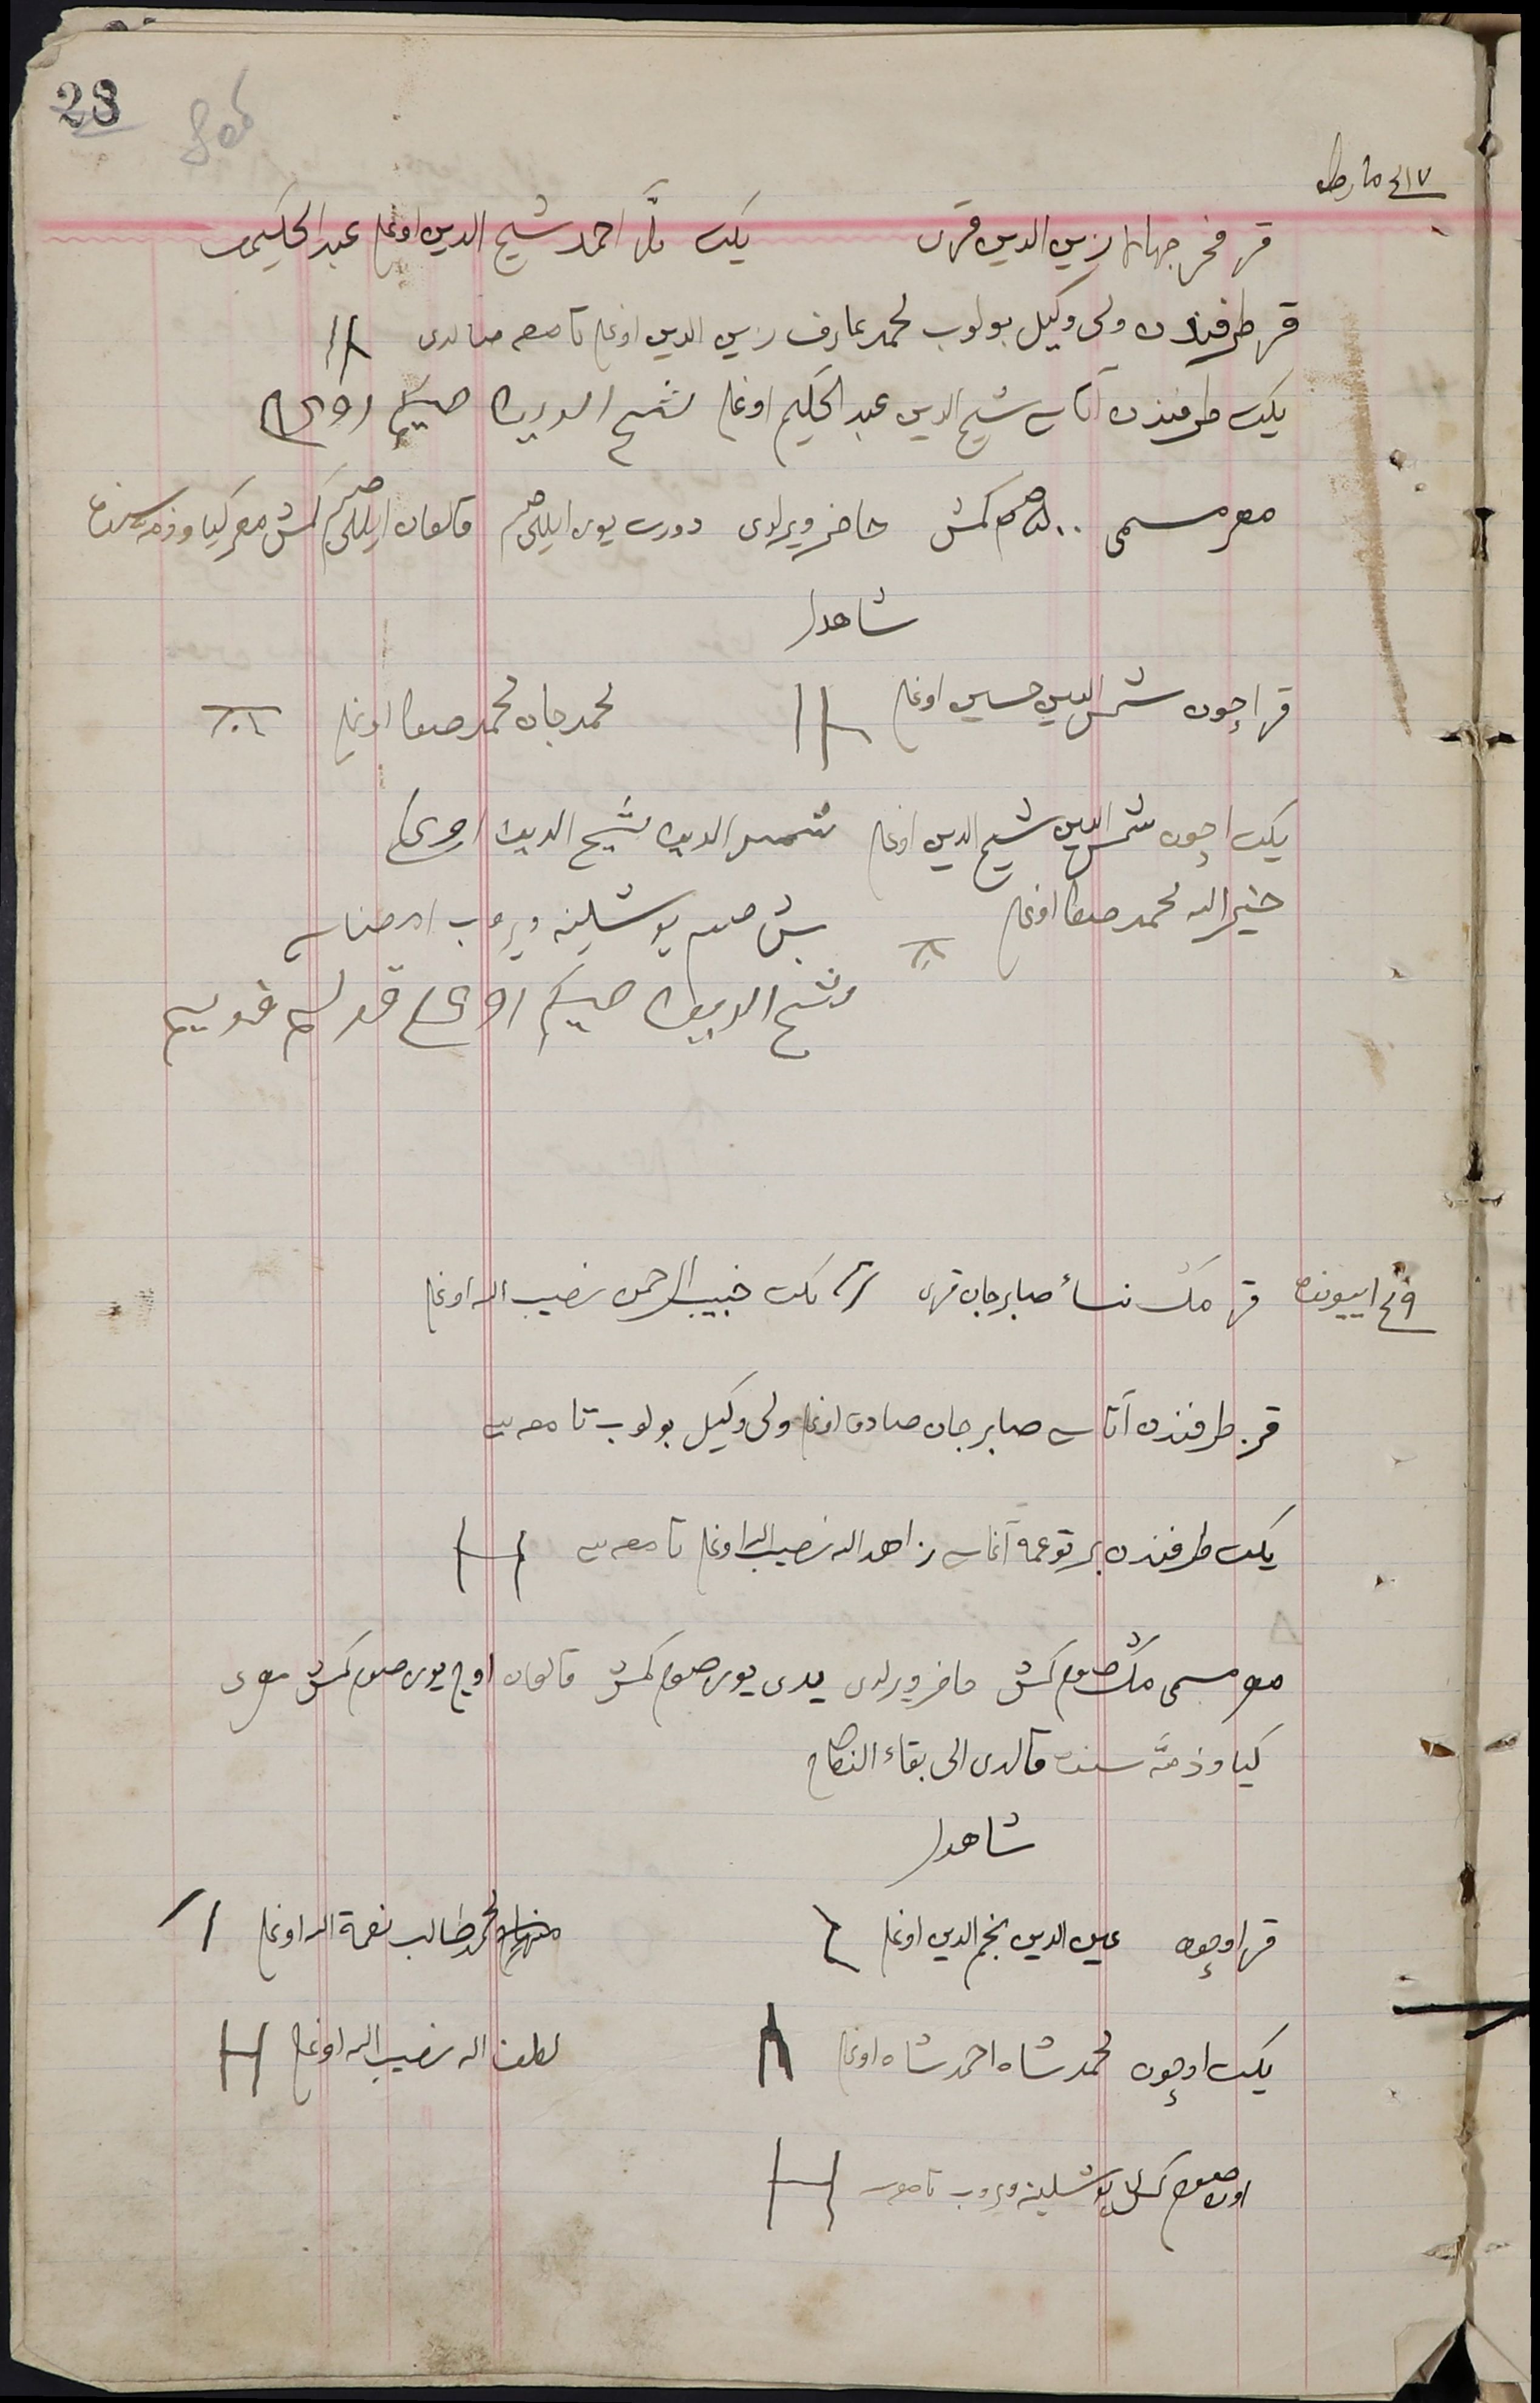 28
١٧ نچی مارطه
قز فخر جهان زین الدین قزی یکت ملا احمد شیخ الدین اوغلی عبد الحکیموف
قز طرفندن ولی وکیل بولوب محمد عارف زین الدین اوغلی تامغه صالدی
یکت طرفندن آتاسی شیخ الدین عبد الحکیم اوغلی شیخ الدین حکیم اوغلی
مهر مسمی ٥٠٠ صوم کمش حاضر ویرلدی دورت یوز ایللی صوم قالغان ایللی صوم کمش مهر کیاو ذمه سنده
شاهدلر
قز اچون شمس الدین حسین اوغلی محمد جان محمد صفا اوغلی
یکت اچون شمس الدین شیخ الدین اوغلی شمس الدین شیخ الدین اوغلی
خیر الله محمد صفا اوغلی بش صوم یوشلینه ویروب
شیخ الدین حکیم اوغلی قولم قویدم
٩ نچی اییونده قز نساء صابرجان قزی یکت حبیب الرحمن نصیب الله اوغلی
قز طرفندن آتاسی صابرجان صادق اوغلی ولی وکیل بولوب تامغه سی
یکت طرفندن بر توغمه آغاسی زاهد الله نصیب الله اوغلی تامغه سی
مهر مسمی مک صوم کمش حاضر ویرلدی یدی یوز صوم کمش قالغان اوچ یوز صوم کمش مهری
کیاو ذمه سنده قالدی الی بقاء النکاح
شاهدلر
قز اوچون عین الدین نجم الدین اوغلی محمد طالب نعمة الله اوغلی
یکت اوچون محمد شاه احمد شاه اوغلی لطف الله نصیب الله اوغلی
اون صوم یوشلینه ویروب تامغه سی